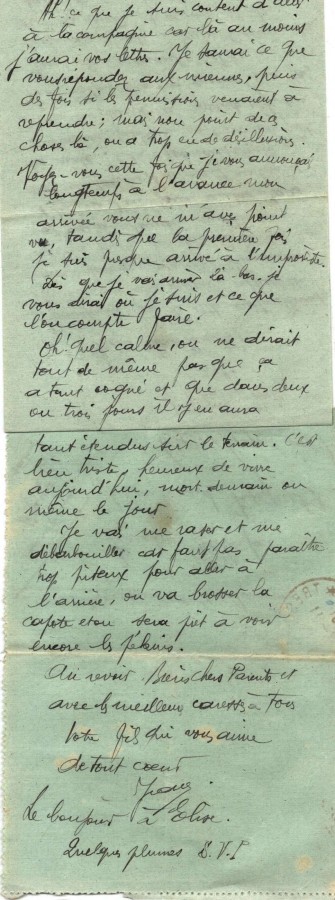 Ah! ce que je suis content d'aller
à la compagnie car là au moins
j'aurai vos lettres. Je saurai ce que
vous répondez aux miennes, puis
des fois si les permissions venaient à
reprendre; mais non point de ces
choses là, on a trop eu de désillusions.
Voyez-vous cette fois que je vous annonçai
longtemps à l'avance mon
arrivée vous ne m'avez point
vu, tandis que la première fois
je suis presque arrivé à l'improviste.
Dès que je vais arriver là-bas je
vous dirai où je suis et ce que
l'on compte faire.
Oh! Quel calme, on ne dirait
tout de même pas que ça
a tant cogné et que dans deux
ou trois jours il y en aura
tant étendus sur le terrain. C'est
bien triste, heureux de vivre
aujourd'hui, mort demain ou
même le jour
Je vais me raser et me
débarbouiller car faut pas paraître
trop piteux pour aller à
l'arrière, on va brosser la
capote et on sera prêt à voir
encore les pékins.
Au revoir Biens chers Parents et
avec les meilleures caresses à Tous
Votre fils qui vous aime
de tout coeur
Le bonjour à Elise.
Quelques plumes S.V.P